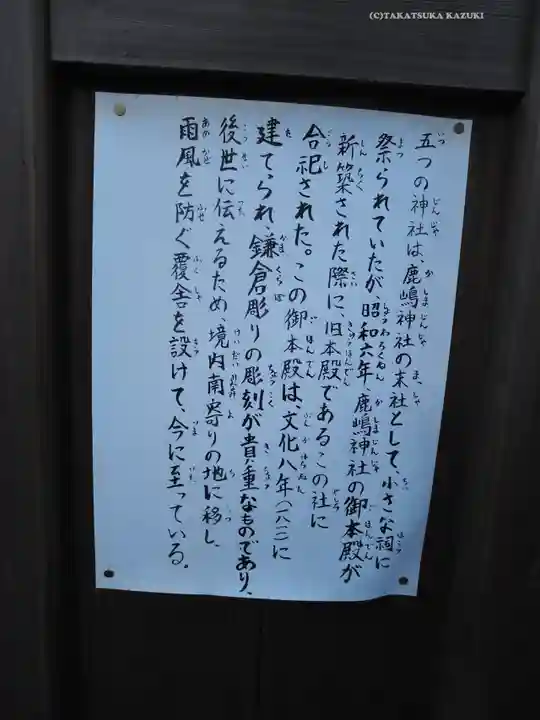 (C)TAKATSUKA KAZUKI
五つの神社は、鹿嶋神社の末社として、小さな祠に
祭られていたが、昭和六年、鹿嶋神社の御本殿が
新築された際に、旧本殿であるこの社に
合祀された。この御本殿は、文化八年(一八一一)に
建てられ、鎌倉彫りの彫刻が貴重なものであり、
後世に伝えるため、境内南寄りの地に移し、
雨風を防ぐ覆舎を設けて、今に至っている。